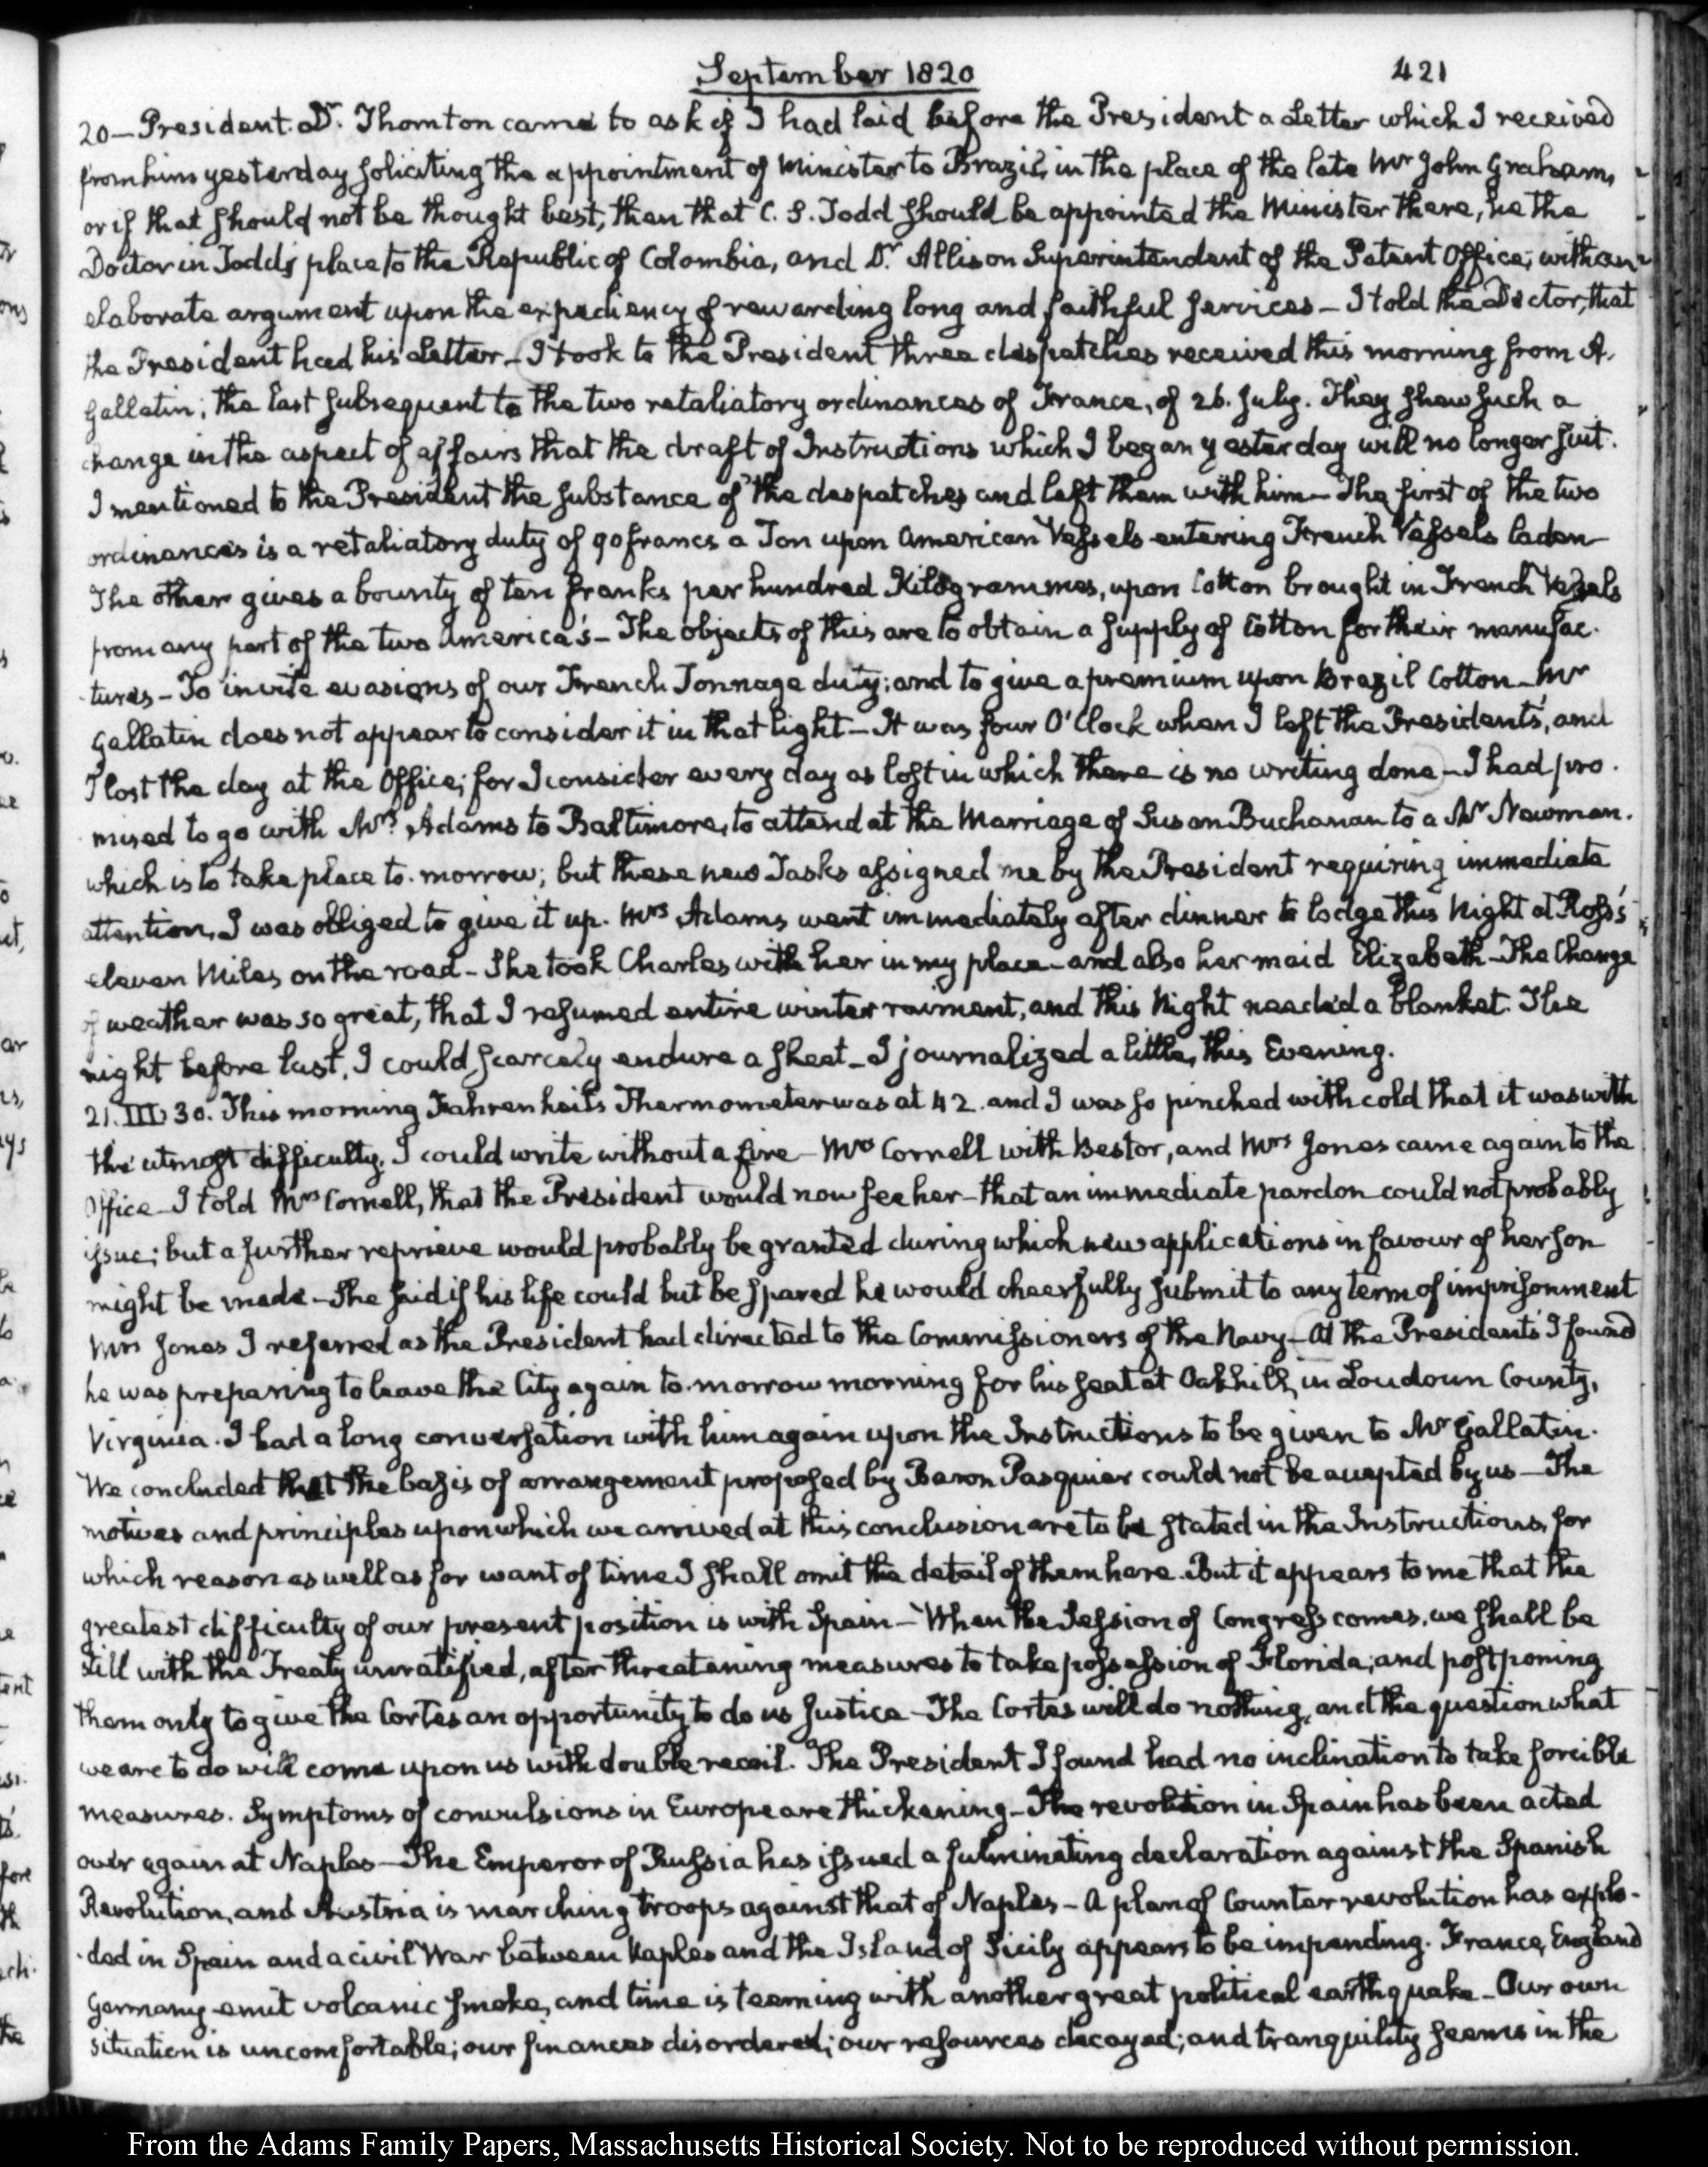 September 1820
421
20— President. Dr. Thornton came to ask if I had laid before the President a Letter which I received
from him yesterday soliciting the appointment of Minister to Brazil, in the place of the late Mr John Graham,
or if that should not be thought best, then that C. S. Todd should be appointed the Minister there, he the
Doctor in Todd's place to the Republic of Colombia, and Dr. Allison Superintendent of the Patent Office; with an
elaborate argument upon the expediency of rewarding long and faithful services — I told the Doctor, that
the President had his Letter — I took to the President three despatches received this morning from A.
Gallatin; the last subsequent to the two retaliatory ordinances of France, of 26. July. They shew such a
change in the aspect of affairs that the draft of Instructions which I began yesterday will no longer suit.
I mentioned to the President the substance of the despatches and left them with him — The first of the two
ordinances is a retaliatory duty of 90 francs a Ton upon American Vessels entering French Vessels laden—
The other gives a bounty of ten franks per hundred Kilogrammes, upon Cotton brought in French Vessels
from any part of the two America's — The objects of this are to obtain a supply of Cotton for their manufac-
tures — To invite evasions of our French Tonnage duty; and to give a premium upon Brazil Cotton — Mr
Gallatin does not appear to consider it in that light — It was four O'Clock when I left the President's, and
I lost the day at the Office; for I consider every day as lost in which there is no writing done — I had pro-
mised to go with Mrs. Adams to Baltimore, to attend at the Marriage of Susan Buchanan to a Mr Newman.
which is to take place to-morrow; but these new Tasks assigned me by the President requiring immediate
attention, I was obliged to give it up. Mrs Adams went immediately after dinner to lodge this Night at Ross's
eleven Miles on the road — She took Charles with her in my place — and also her maid Elizabeth — The Change
of weather was so great, that I resumed entire winter raiment, and this Night needed a blanket. The
night before last, I could scarcely endure a sheet — I journalized a little, this Evening.
21. III. 30. This morning Fahrenheit's Thermometer was at 42. and I was so pinched with cold that it was with
the utmost difficulty, I could write without a fire — Mrs Cornell with Bestor, and Mrs Jones came again to the
Office — I told Mrs Cornell, that the President would now see her — that an immediate pardon could not probably
issue; but a further reprieve would probably be granted during which new applications in favour of her son
might be made — She said if his life could but be spared he would cheerfully submit to any term of imprisonment
Mrs Jones I referred as the President had directed to the Commissioners of the Navy — At the President's I found
he was preparing to leave the City again to-morrow morning for his seat at Oakhill, in Loudoun County,
Virginia. I had a long conversation with him again upon the Instructions to be given to Mr Gallatin.
We concluded that the basis of arrangement proposed by Baron Pasquier could not be accepted by us — The
motives and principles upon which we arrived at this conclusion are to be stated in the Instructions, for
which reason as well as for want of time I shall omit the detail of them here. But it appears to me that the
greatest difficulty of our present position is with Spain — When the Session of Congress comes, we shall be
still with the Treaty unratified, after threatening measures to take possession of Florida; and postponing
them only to give the Cortes an opportunity to do us Justice — The Cortes will do nothing, and the question what
we are to do will come upon us with double recoil. The President I found had no inclination to take forcible
measures. Symptoms of convulsions in Europe are thickening — The revolution in Spain has been acted
over again at Naples — The Emperor of Russia has issued a fulminating declaration against the Spanish
Revolution, and Austria is marching troops against that of Naples — A plan of Counter revolution has explo-
ded in Spain and a civil War between Naples and the Island of Sicily appears to be impending. France, England
Germany emit volcanic smoke, and time is teeming with another great political earthquake — Our own
situation is uncomfortable; our finances disordered; our resources decayed; and tranquility seems in the
From the Adams Family Papers, Massachusetts Historical Society. Not to be reproduced without permission.